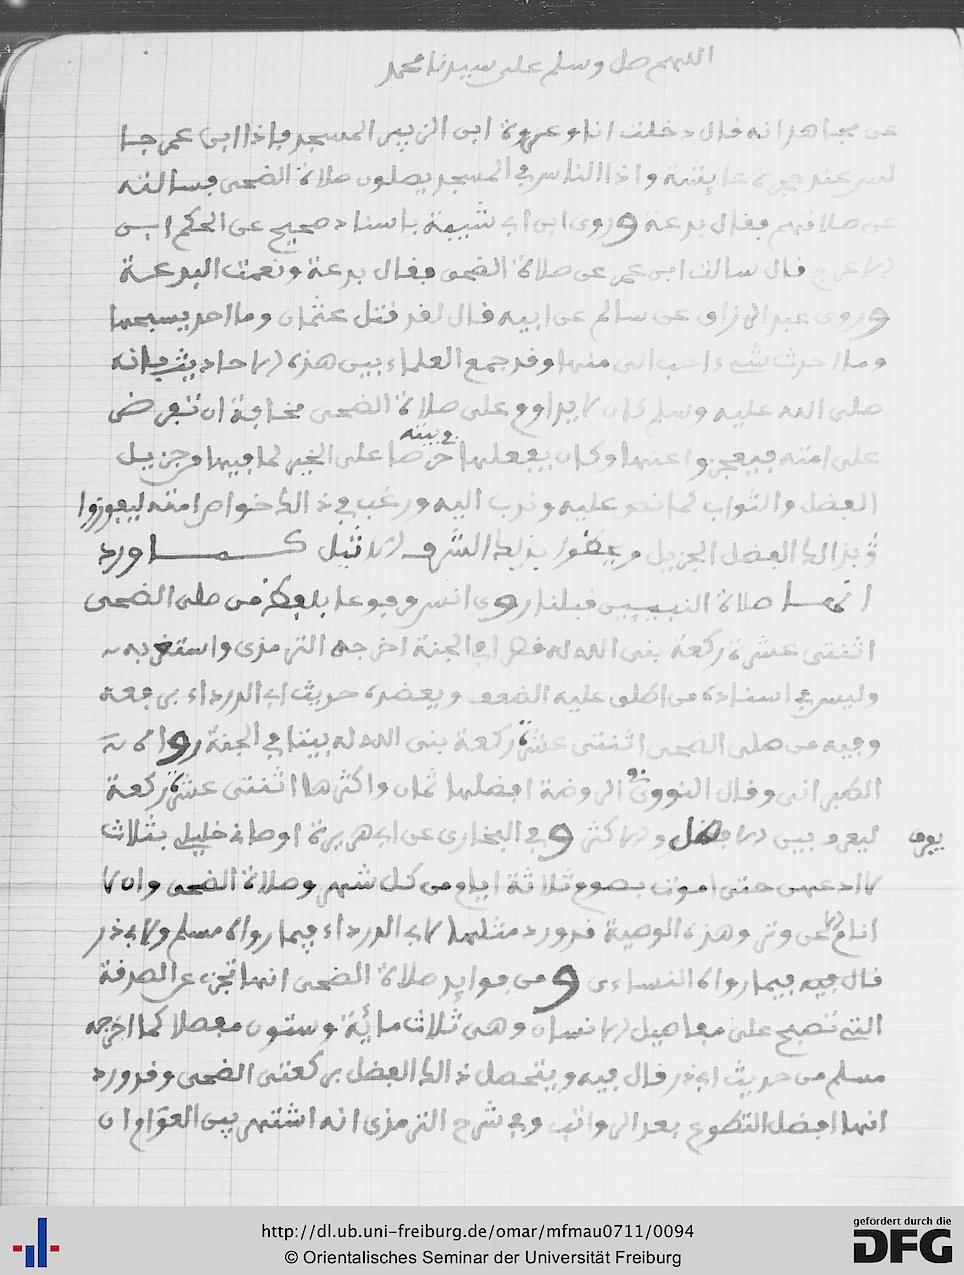 اللهم صل وسلم على سيدنا محمد
عن مجاهد انه قال دخلت انا وعروة ابن الزبير المسجد فاذا ابن عمر جا
لس عند حجرة عايشة واذا الناس في المسجد يصلون صلاة الضحى فسالته
عن صلاتهم فقال بدعة وروى ابن ابي شيبة باسناد صحيح عن الحكم ابن
الاعرج قال سالت ابن عمر عن صلاة الضحى فقال بدعة ونعمت البدعة
وروى عبد الرزاق عن سالم عن ابيه قال لقد قتل عثمان وما احد يسبحها
وما احدث شيء احب الي منها وقد جمع العلماء بين هذه الاحاديث بانه
صلى الله عليه وسلم كان لا يداوم على صلاة الضحى مخافة ان تفرض
على امته فيعجزوا عنها وكان يفعلها في بيته حرصا على الخير لما فيها من جزيل
الفضل والثواب كما نص عليه وندب اليه ورغب في ذالك خواص امته ليفوزوا
بذالك الفضل الجزيل و بذلك الشرف الاثيل كما ورد
انها صلاة النبيين قبلنا روى انس مرفوعا بلفظ من صلى الضحى
اثنتي عشرة ركعة بنى الله له قصرا في الجنة اخرجه الترمذي واستغربه
وليس في اسناده من اطلق عليه الضعف ويعضده حديث ابي الدرداء برفعه
وفيه من صلى الضحى اثنتي عشرة ركعة بنى الله له بيتا في الجنة رواه
الطبراني وقال النووي في الروضة افضلها ثمان واكثرها اثنتى عشرة ركعة
ليفرق بين الافضل والاكثر وفي البخاري عن ابي هريرة اوصاني خليلي بثلاث
يفرق
لا ادعهن حتى اموت بصوم ثلاثة ايام من كل شهر وصلاة الضحى وان لا
انام الا على وتر وهذه الوصية قد ورد مثلها لابي الدرداء فيما رواه مسلم ولابي ذر
قال فيه فيما رواه النساءي ومن فوايد صلاة الضحى انها تجزي عن الصدقة
التي تصبح على مفاصيل الانسان وهي ثلاث ماية وستون مفصلا كما اخرجه
مسلم من حديث ابي ذر قال فيه ويتحصل ذالك الفضل بركعتى الضحى وقد ورد
انها افضل التطوع بعد الرواتب وفي شرح الترمذي انه اشتهر بين العوام ان
http://dl.ub.uni-freiburg.de/omar/mfmau0711/0094
© Orientalisches Seminar der Universität Freiburg
gefördert durch die
DFG